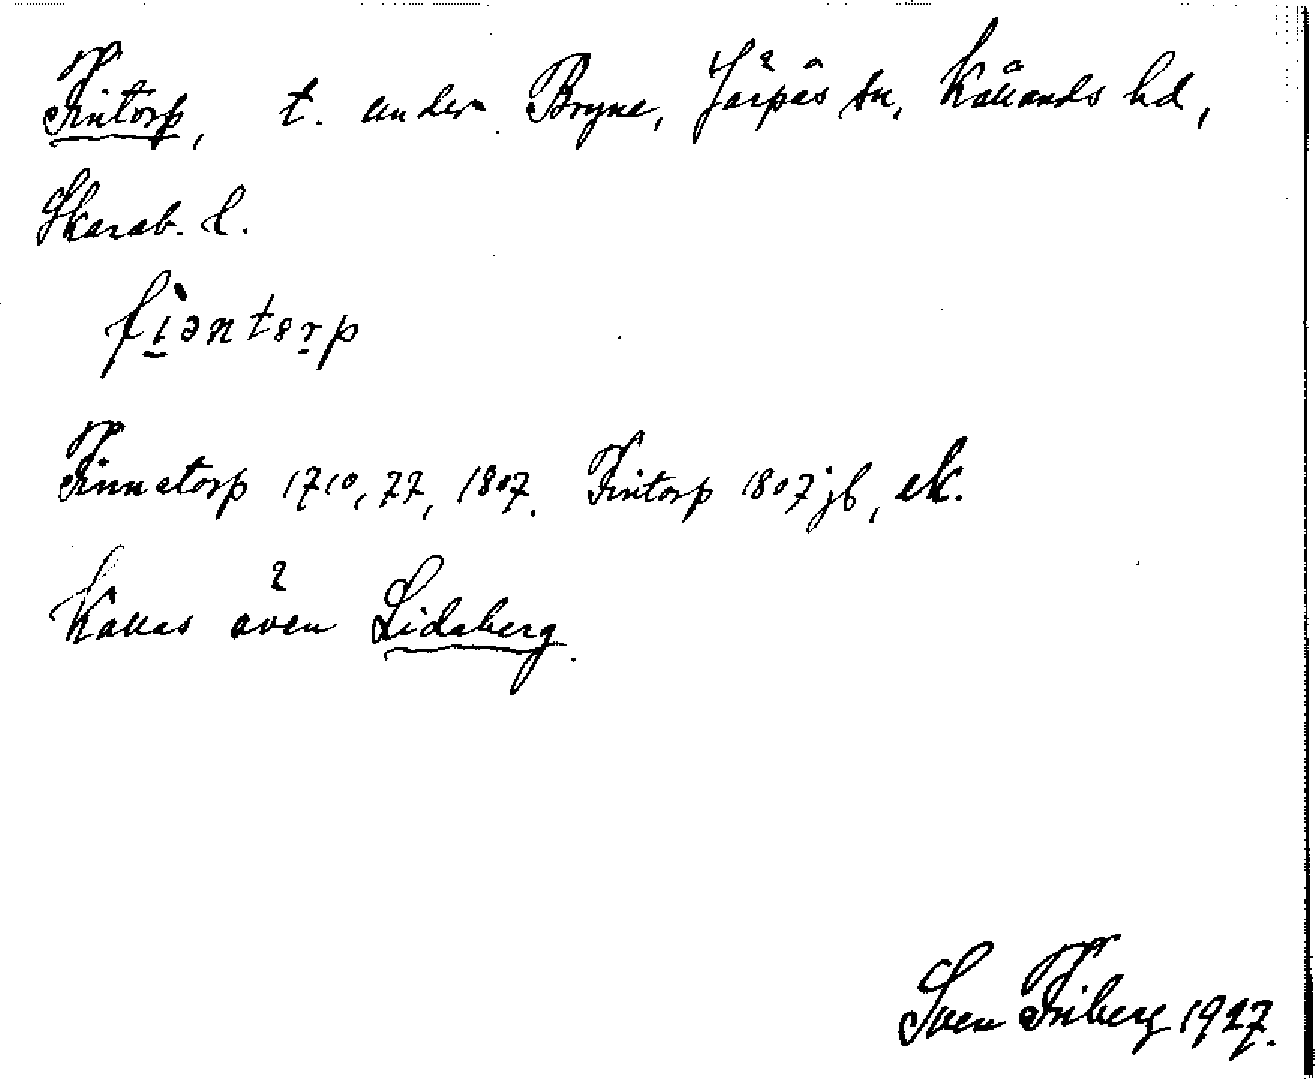 Fintorp, t. under Bryne, Järpås sn, Kållands hd,
Skarab. l.
fìəntorp
Finnatorp 1710, 77, 1807. Fintorp 1807 jb, ek.
Kallas även Lidaberg.
Sven Friberg 1927.